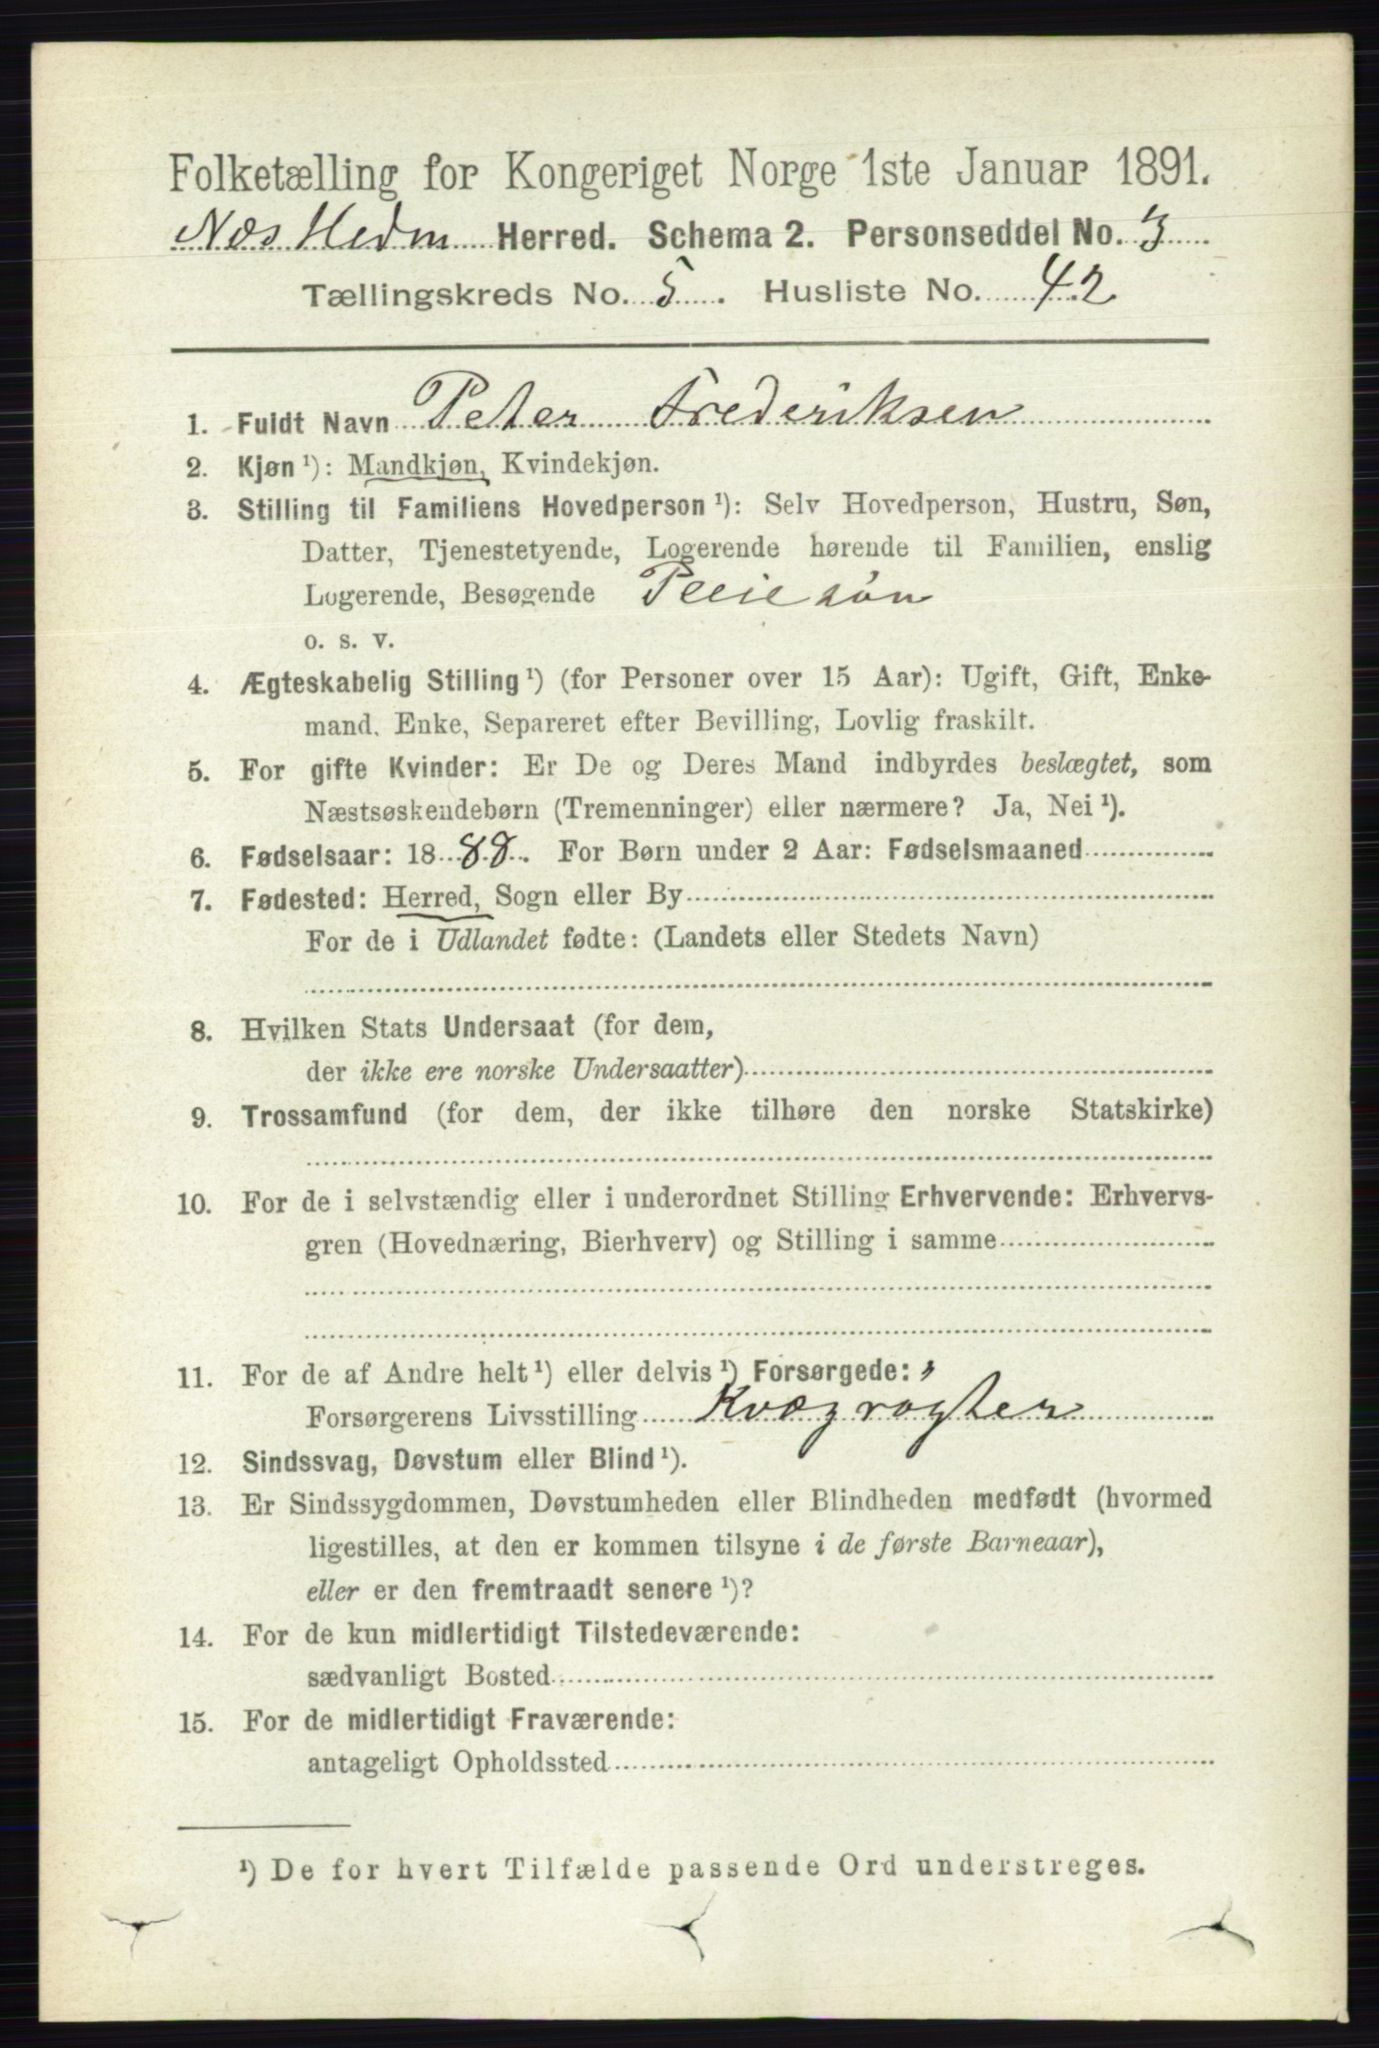 Folketælling for Kongeriget Norge 1ste Januar 1891.
Næs Hedm Herred. Schema 2. Personseddel No. 3
Tællingskreds No. 5. Husliste No. 42
1. Fuldt Navn Peter Frederiksen
2. Kjøn ¹): Mandkjøn, Kvindekjøn.
3. Stilling til Familiens Hovedperson ¹): Selv Hovedperson, Hustru, Søn,
Datter, Tjenestetyende, Logerende hørende til Familien, enslig
Logerende, Besøgende Pleiesøn
o. s. v.
4. Ægteskabelig Stilling ¹) (for Personer over 15 Aar): Ugift, Gift, Enke-
mand, Enke, Separeret efter Bevilling, Lovlig fraskilt.
5. For gifte Kvinder: Er De og Deres Mand indbyrdes beslægtet, som
Næstsøskendebørn (Tremenninger) eller nærmere? Ja, Nei ¹).
6. Fødselsaar: 1888. For Børn under 2 Aar: Fødselsmaaned
7. Fødested: Herred, Sogn eller By
For de i Udlandet fødte: (Landets eller Stedets Navn)
8. Hvilken Stats Undersaat (for dem,
der ikke ere norske Undersaatter)
9. Trossamfund (for dem, der ikke tilhøre den norske Statskirke)
10. For de i selvstændig eller i underordnet Stilling Erhvervende: Erhvervs-
gren (Hovednæring, Bierhverv) og Stilling i samme
11. For de af Andre helt ¹) eller delvis ¹) Forsørgede:
Forsørgerens Livsstilling Kvægrøgter
12. Sindssvag, Døvstum eller Blind ¹).
13. Er Sindssygdommen, Døvstumheden eller Blindheden medfødt (hvormed
ligestilles, at den er kommen tilsyne i de første Barneaar),
eller er den fremtraadt senere ¹)?
14. For de kun midlertidigt Tilstedeværende:
sædvanligt Bosted
15. For de midlertidigt Fraværende:
antageligt Opholdssted
¹) De for hvert Tilfælde passende Ord understreges.